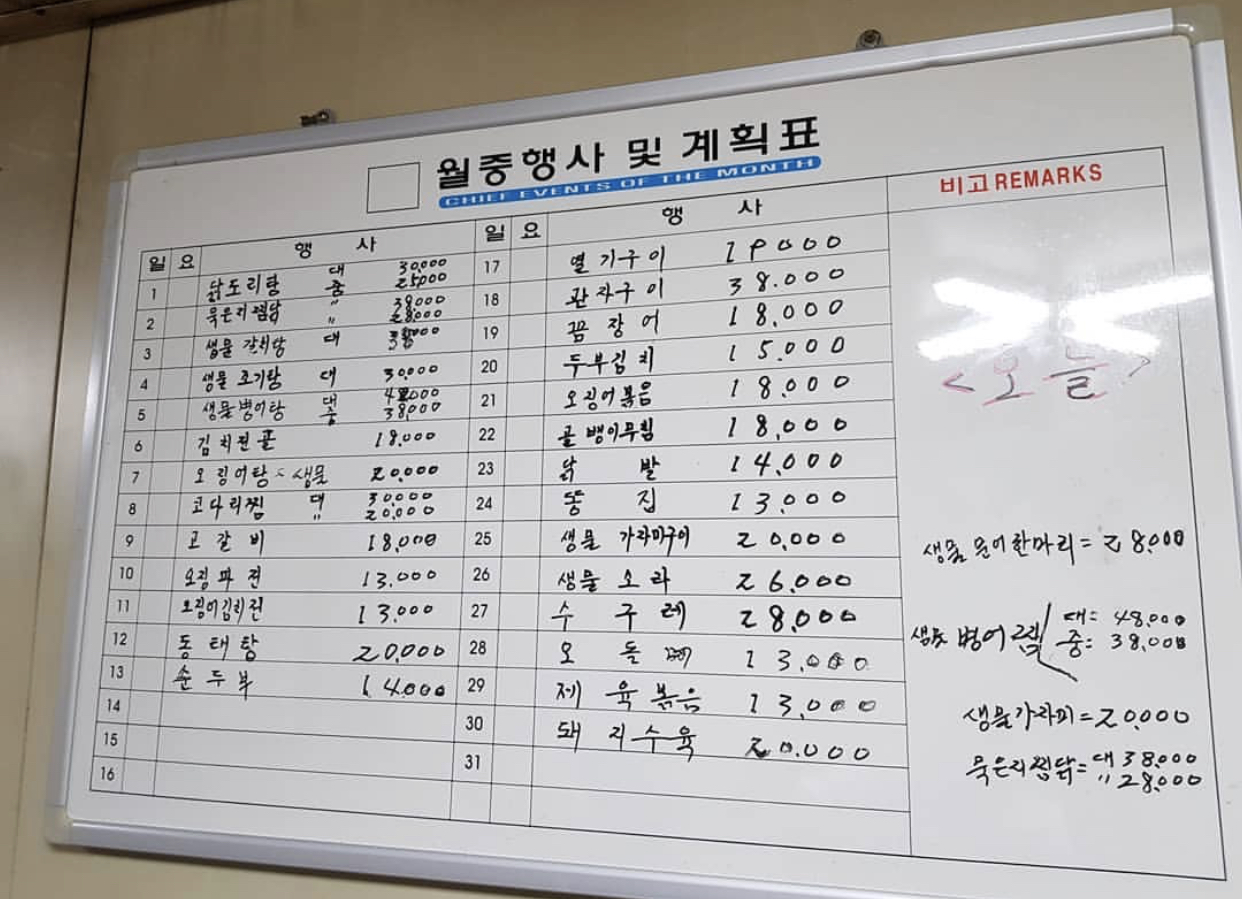 월중행사 및 계획표
CHIEF EVENTS OF THE MONTH
일 요 행 사
1 닭도리탕 대 30,000
중 25,000
2 묵은지찜닭 〃 38,000
〃 28,000
3 생물 갈치탕 대
4 생물 조기탕 대 30,000
5 생물병어탕 대 48,000
중 38,000
6 김치전골 18,000
7 오징어탕 생물 20,000
8 코다리찜 대 30,000
〃 20,000
9 고갈비 18,000
10 오징파전 13,000
11 오징어김치전 13,000
12 동태탕 20,000
13 순두부 14,000
14
15
16
일 요 행 사
17 열기구이
18 관자구이 38,000
19 꼼장어 18,000
20 두부김치 15,000
21 오징어볶음 18,000
22 골뱅이무침 18,000
23 닭 발 14,000
24 똥 집 13,000
25 생물 가자미구이 20,000
26 생물 소라 26,000
27 수 구 레 28,000
28 오 돌 13,000
29 제 육볶음 13,000
30 돼 지수육 20,000
31
비고 REMARKS
<오늘>
생물 문어한마리 = 28,000
생물 병어 대: 48,000
중: 38,000
생물가자미 = 20,000
묵은지찜닭 = 대 38,000
〃 28,000